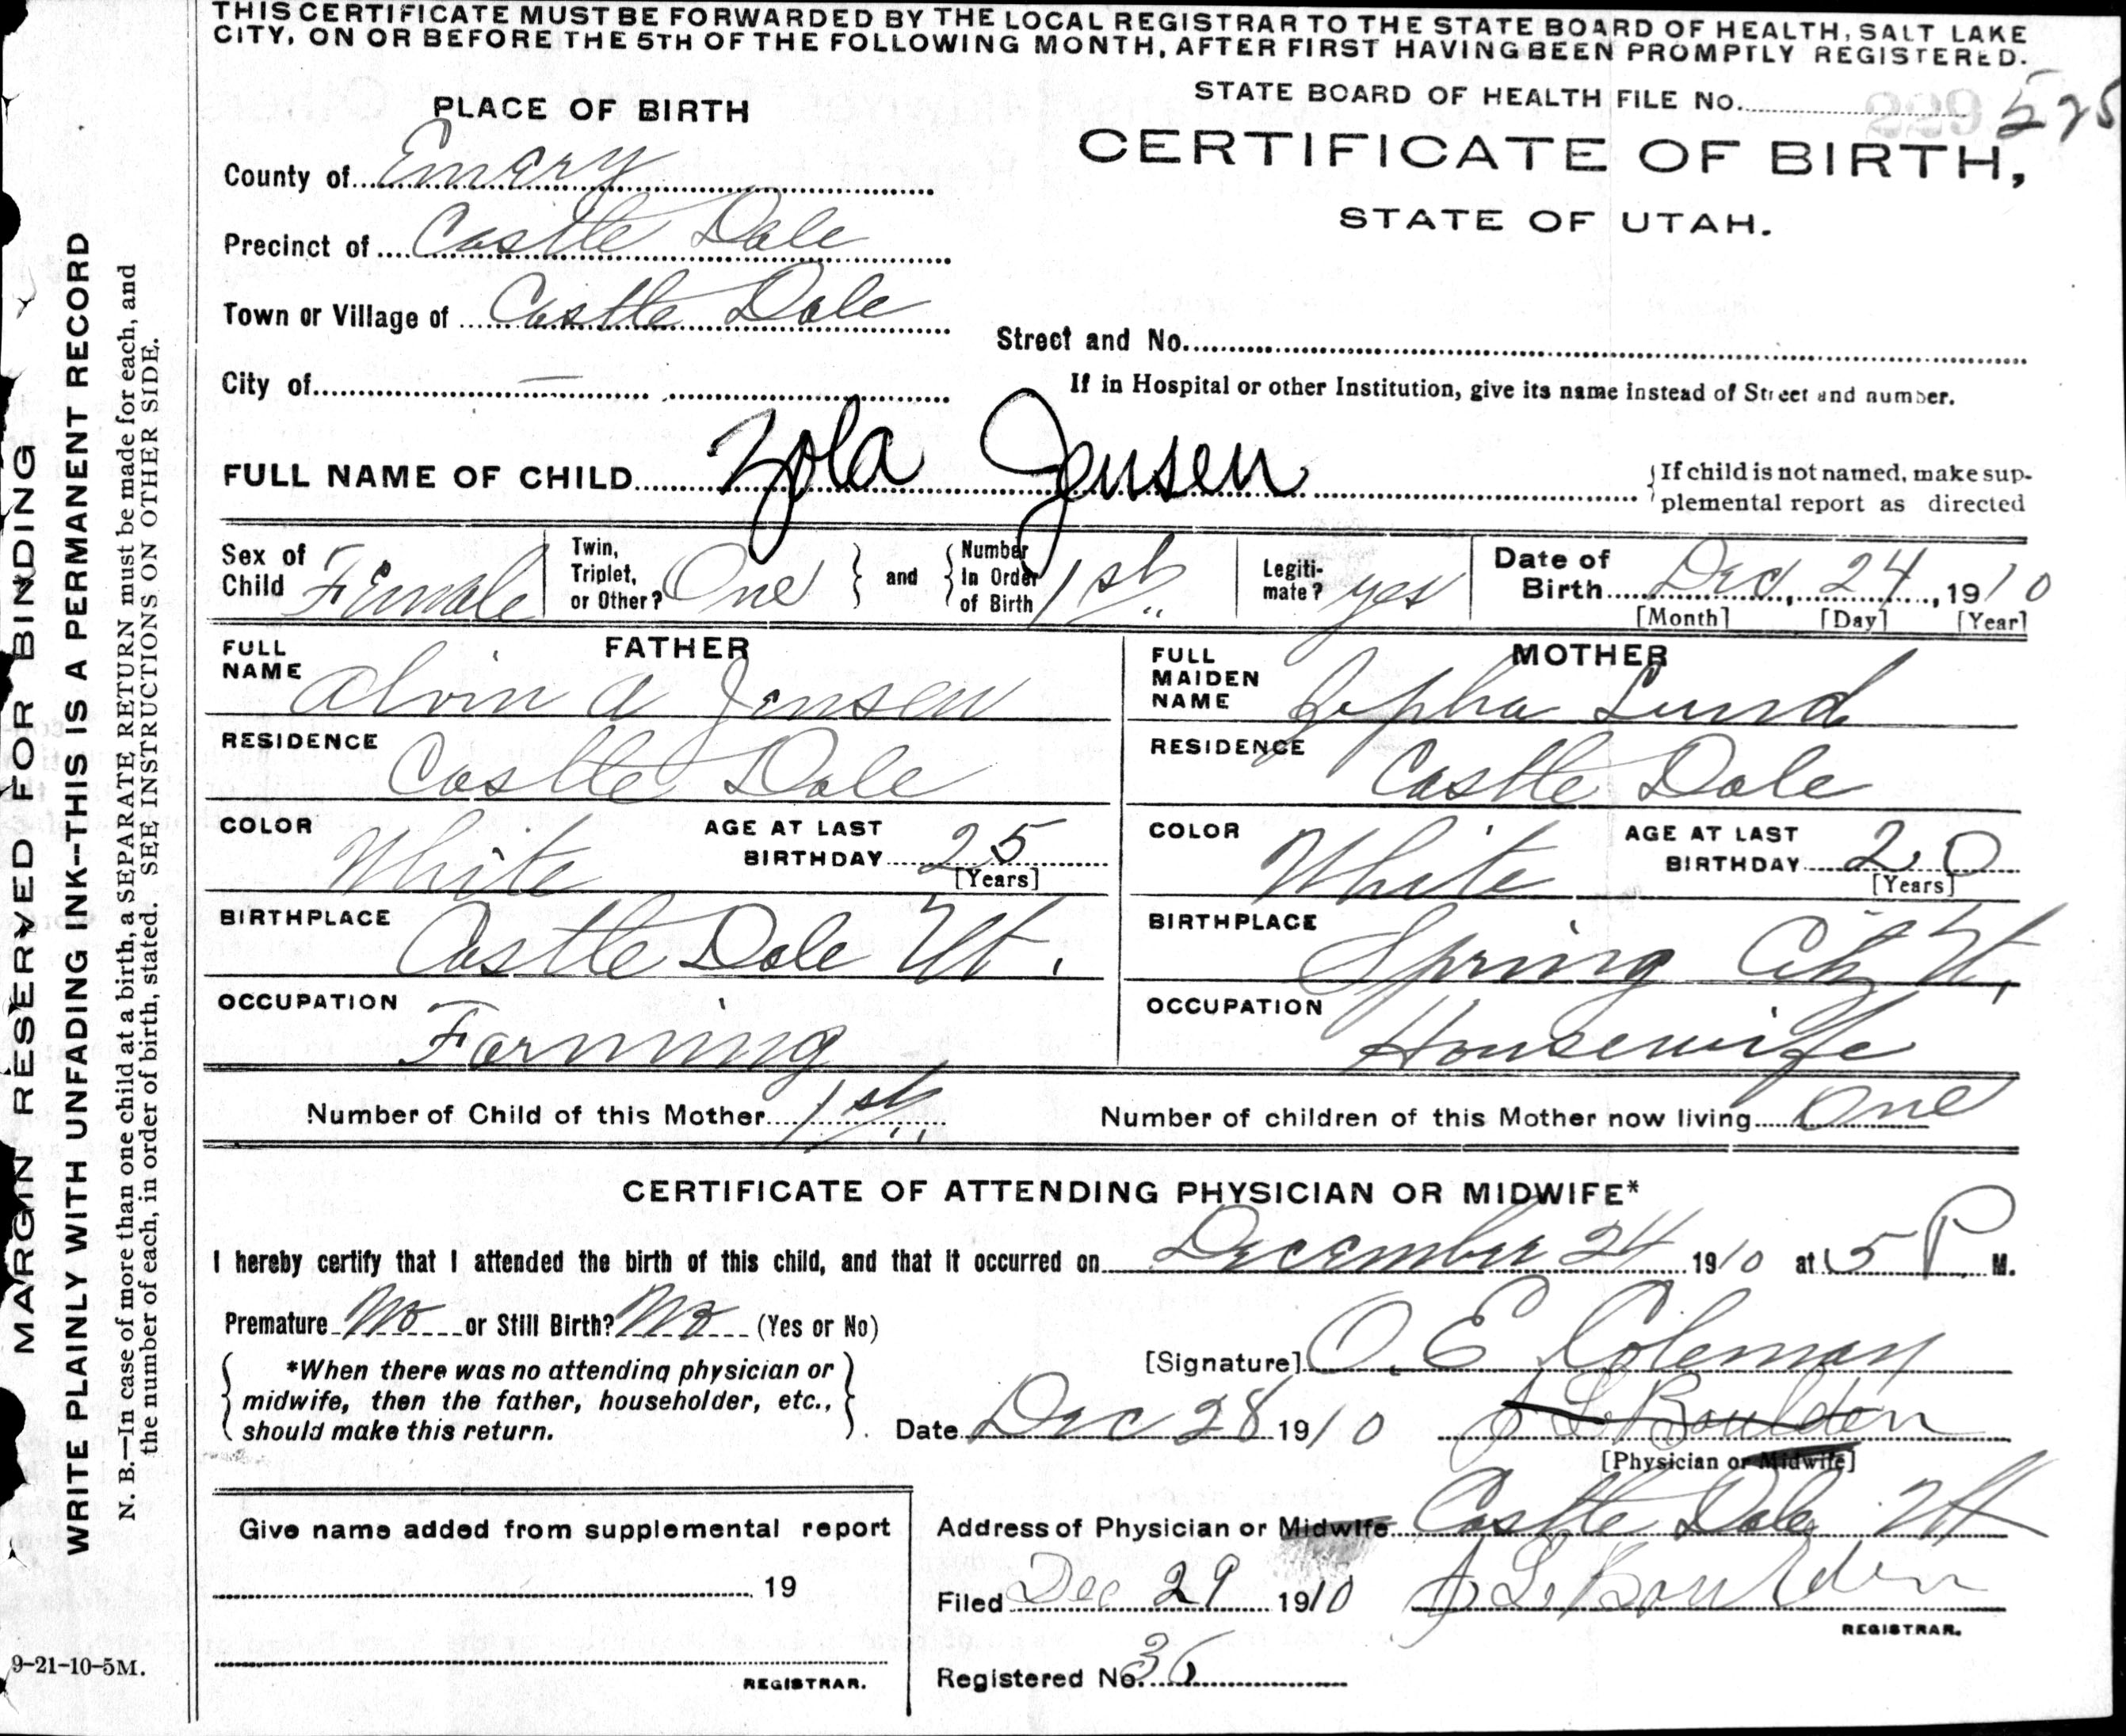 THIS CERTIFICATE MUST BE FORWARDED BY THE LOCAL REGISTRAR TO THE STATE BOARD OF HEALTH, SALT LAKE
CITY, ON OR BEFORE THE 5TH OF THE FOLLOWING MONTH, AFTER FIRST HAVING BEEN PROMPTLY REGISTERED.
STATE BOARD OF HEALTH FILE No. 229 525
PLACE OF BIRTH
CERTIFICATE OF BIRTH,
STATE OF UTAH.
County of Emery
Precinct of Castle Dale
Town or Village of Castle Dale
Street and No.
City of —
If in Hospital or other Institution, give its name instead of Street and number.
FULL NAME OF CHILD Zola Jensen
If child is not named, make sup-
plemental report as directed
Sex of Child Female
Twin, Triplet, or Other? One
and
Number In Order of Birth 1st
Legiti-mate? yes
Date of Birth Dec, 24, 1910
[Month] [Day] [Year]
FATHER
FULL NAME Alvin A Jensen
MOTHER
FULL MAIDEN NAME Zepha Lund
RESIDENCE Castle Dale
RESIDENCE Castle Dale
COLOR White
AGE AT LAST BIRTHDAY 25 [Years]
COLOR White
AGE AT LAST BIRTHDAY 20 [Years]
BIRTHPLACE Castle Dale Ut.
BIRTHPLACE Spring City Ut,
OCCUPATION Farming
OCCUPATION Housewife
Number of Child of this Mother 1st
Number of children of this Mother now living One
CERTIFICATE OF ATTENDING PHYSICIAN OR MIDWIFE*
I hereby certify that I attended the birth of this child, and that it occurred on December 24 1910 at 5 P M.
Premature No or Still Birth? No (Yes or No)
*When there was no attending physician or
midwife, then the father, householder, etc.,
should make this return.
[Signature] O. E Coleman
Date Dec 28 1910 J L Boulden
[Physician or Midwife]
Address of Physician or Midwife Castle Dale Ut
Filed Dec 29 1910 J L Boulden
REGISTRAR.
Registered No. 36
Give name added from supplemental report
19
REGISTRAR.
MARGIN RESERVED FOR BINDING
WRITE PLAINLY WITH UNFADING INK—THIS IS A PERMANENT RECORD
N. B.—In case of more than one child at a birth, a SEPARATE RETURN must be made for each, and
the number of each, in order of birth, stated. SEE INSTRUCTIONS ON OTHER SIDE.
9-21-10-5M.